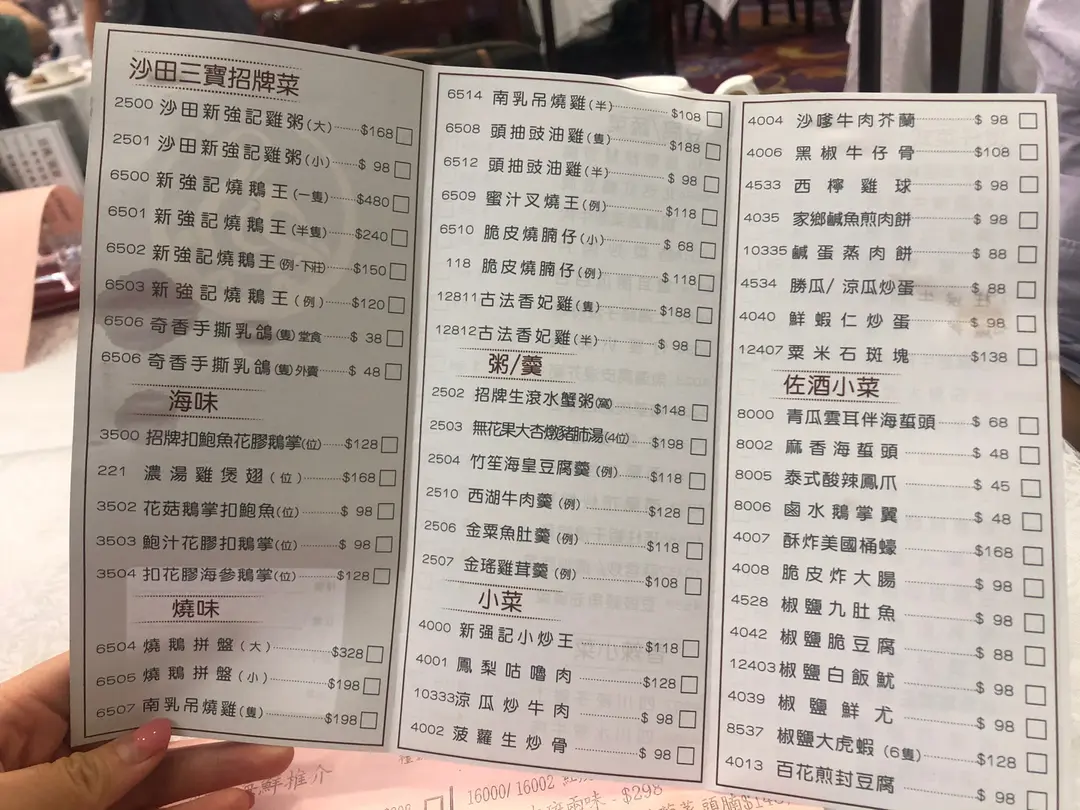 沙田三寶招牌菜
2500 沙田新強記雞粥(大) $168
2501 沙田新強記雞粥(小) $ 98
6500 新強記燒鵝王(一隻) $480
6501 新強記燒鵝王(半隻) $240
6502 新強記燒鵝王(例-下莊) $150
6503 新強記燒鵝王(例) $120
6506 奇香手撕乳鴿(隻)堂食 $ 38
6506 奇香手撕乳鴿(隻)外賣 $ 48
海味
3500 招牌扣鮑魚花膠鵝掌(位) $128
221 濃湯雞煲翅(位) $168
3502 花菇鵝掌扣鮑魚(位) $ 98
3503 鮑汁花膠扣鵝掌(位) $ 98
3504 扣花膠海參鵝掌(位) $128
燒味
6504 燒鵝拼盤(大) $328
6505 燒鵝拼盤(小) $198
6507 南乳吊燒雞(隻) $198
6514 南乳吊燒雞(半) $108
6508 頭抽豉油雞(隻) $188
6512 頭抽豉油雞(半) $ 98
6509 蜜汁叉燒王(例) $118
6510 脆皮燒腩仔(小) $ 68
118 脆皮燒腩仔(例) $118
12811 古法香妃雞(隻) $188
12812 古法香妃雞(半) $ 98
粥/羹
2502 招牌生滾水蟹粥(窩) $148
2503 無花果大杏燉豬肺湯(4位) $198
2504 竹笙海皇豆腐羹(例) $118
2510 西湖牛肉羹(例) $128
2506 金粟魚肚羹(例) $118
2507 金瑤雞茸羹(例) $108
小菜
4000 新强記小炒王 $118
4001 鳳梨咕嚕肉 $128
10333 涼瓜炒牛肉 $ 98
4002 菠蘿生炒骨 $ 98
4004 沙嗲牛肉芥蘭 $ 98
4006 黑椒牛仔骨 $108
4533 西檸雞球 $ 98
4035 家鄉鹹魚煎肉餅 $ 98
10335 鹹蛋蒸肉餅 $ 88
4534 勝瓜/涼瓜炒蛋 $ 88
4040 鮮蝦仁炒蛋 $ 98
12407 粟米石斑塊 $138
佐酒小菜
8000 青瓜雲耳伴海蜇頭 $ 68
8002 麻香海蜇頭 $ 48
8005 泰式酸辣鳳爪 $ 45
8006 鹵水鵝掌翼 $ 48
4007 酥炸美國桶蠔 $168
4008 脆皮炸大腸 $ 98
4528 椒鹽九肚魚 $ 98
4042 椒鹽脆豆腐 $ 88
12403 椒鹽白飯魷 $ 98
4039 椒鹽鮮尤 $ 98
8537 椒鹽大虎蝦(6隻) $128
4013 百花煎封豆腐 $ 98
鮮推介
16000/16002
兩味 - $298